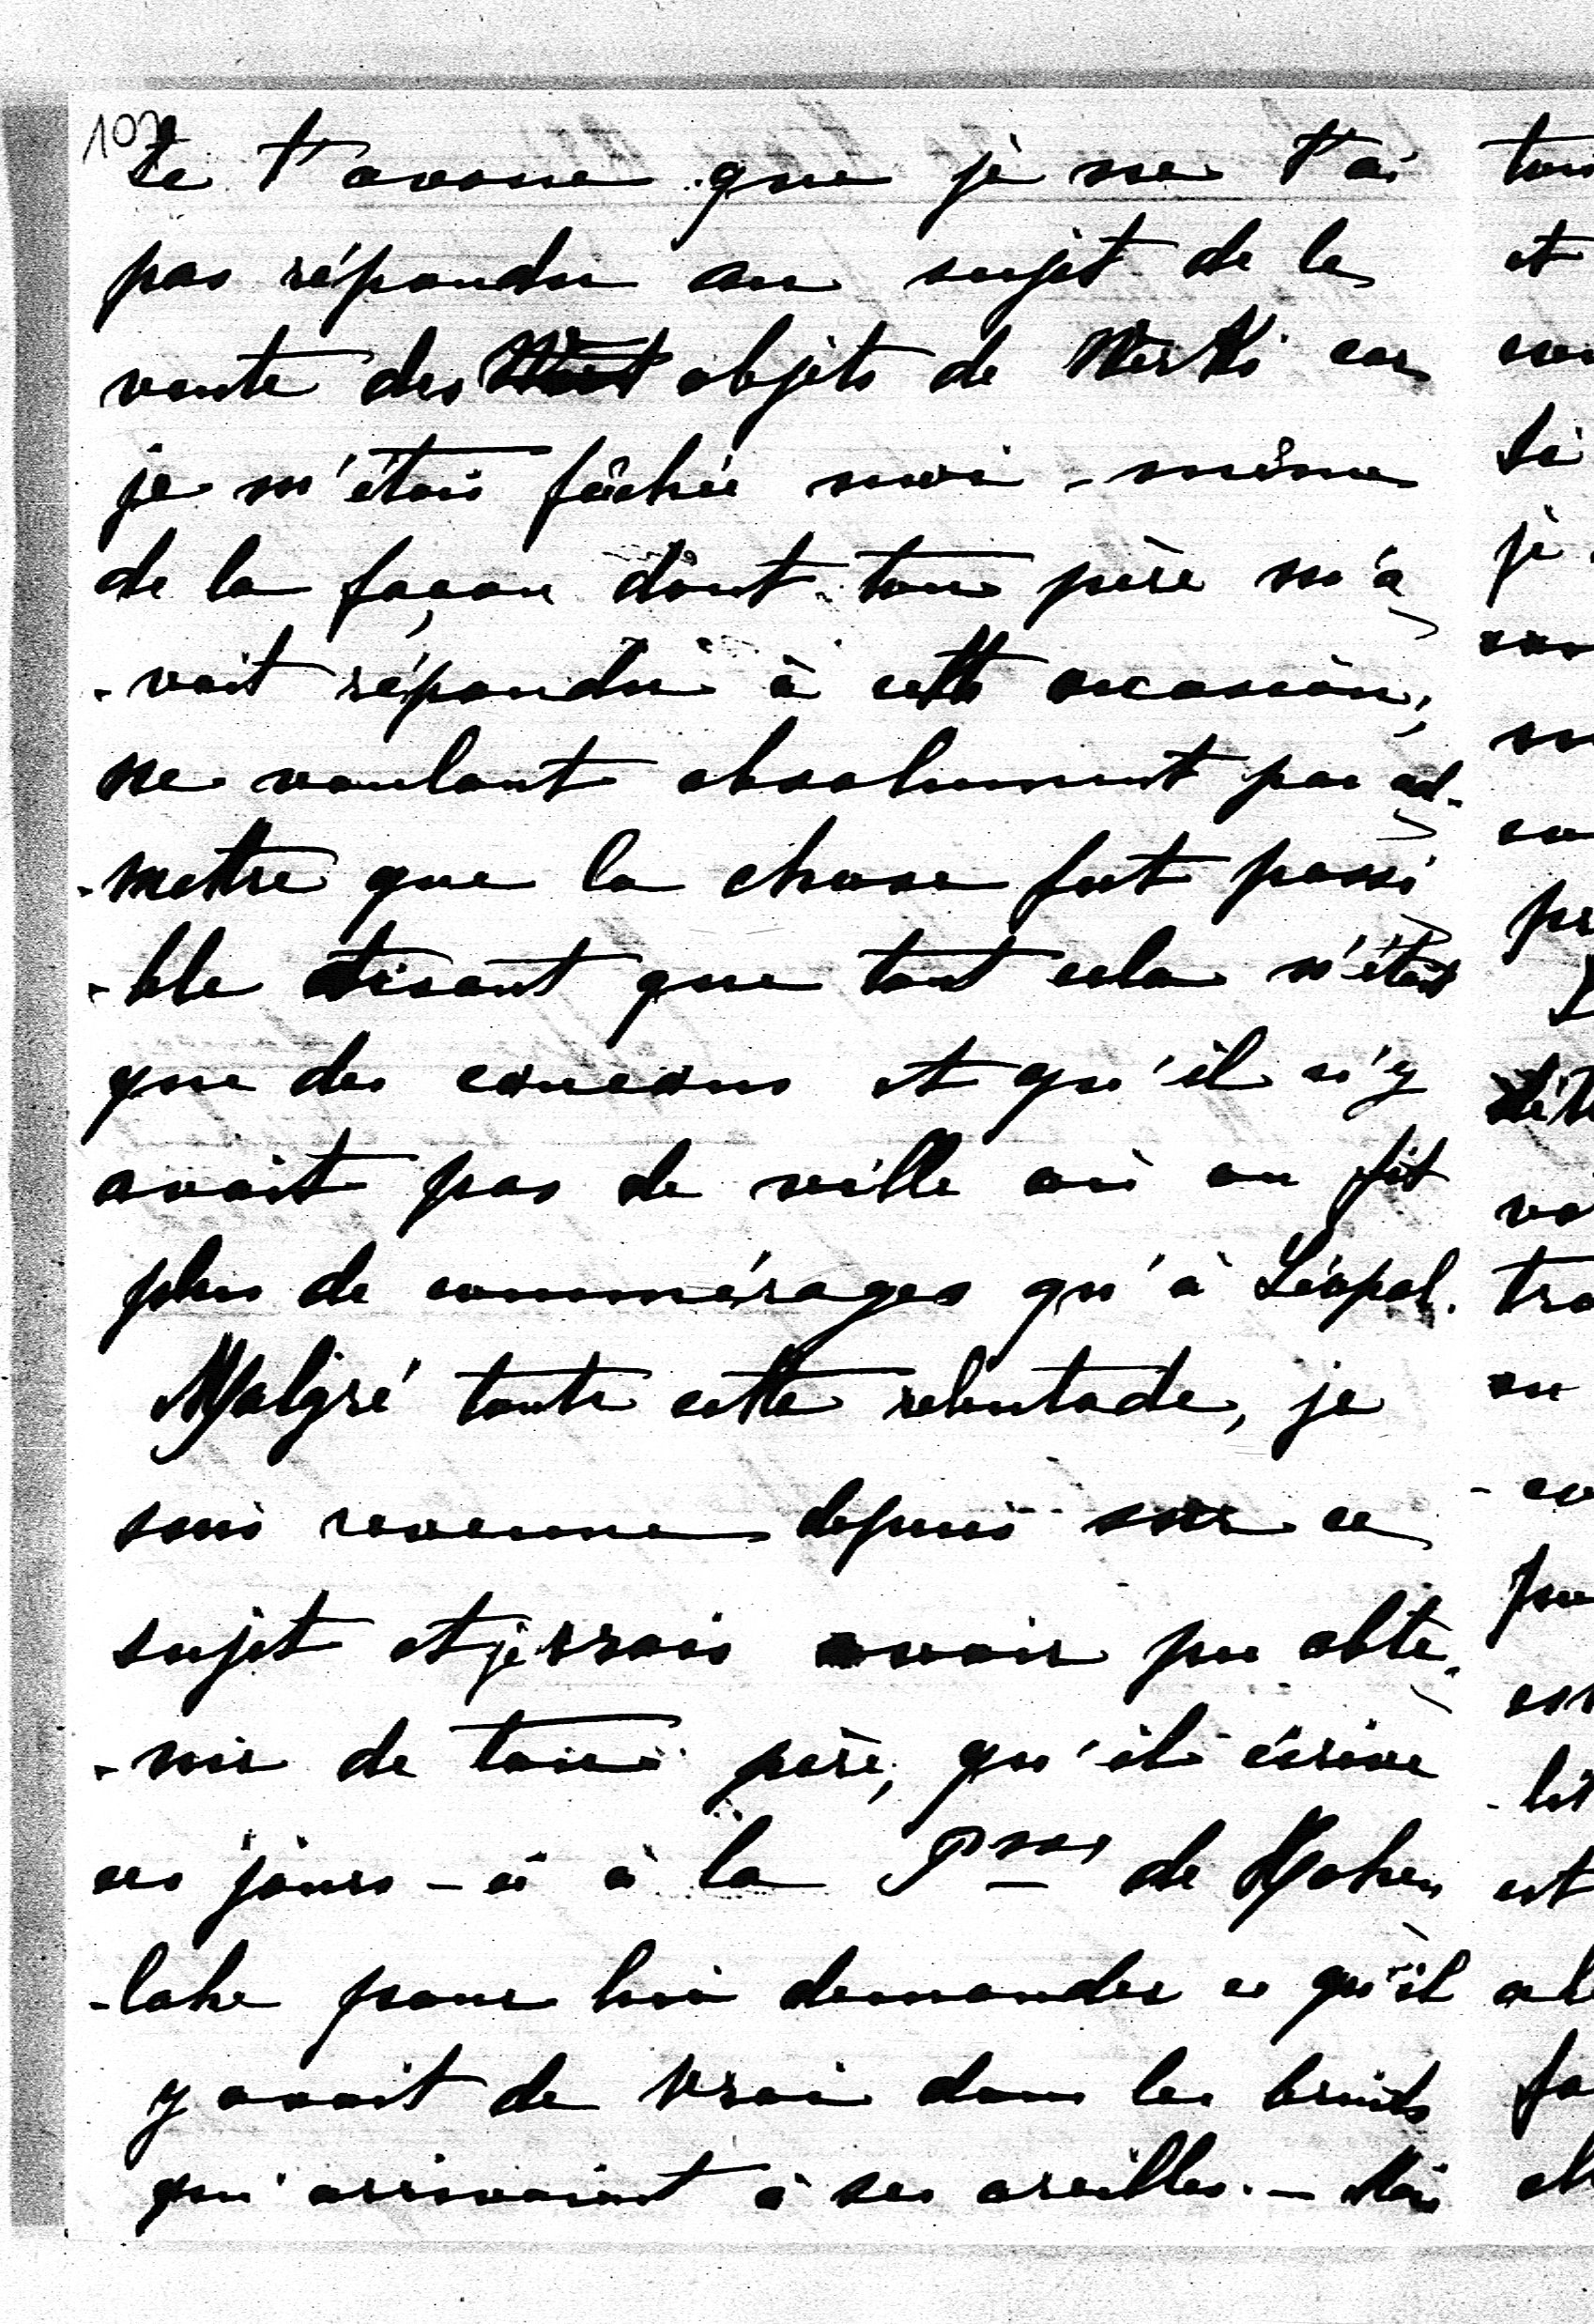 102
Je t'avoue que je ne t'ai
pas répondu au sujet de la
vente des objets de Werki car
je m'étais fâchée moi-même
de la façon dont ton père m'a
-vait répondu à cette occasion,
ne voulant absolument pas ad-
-mettre que la chose fut possi
-ble disant que tout cela n'était
que des cancans et qu'il n'y
avait pas de ville où on fit
plus de commérages qu'à Léopol.
Malgré toute cette rebutade, je
suis revenue depuis sur ce
sujet et je crois avoir pu obte-
-nir de ton père, qu'il écrive
ces jours-ci à la Psse de Hohen
-lohe pour lui demander ce qu'il
y avait de vrai dans les bruits
qui arrivaient à ses oreilles. — Mais